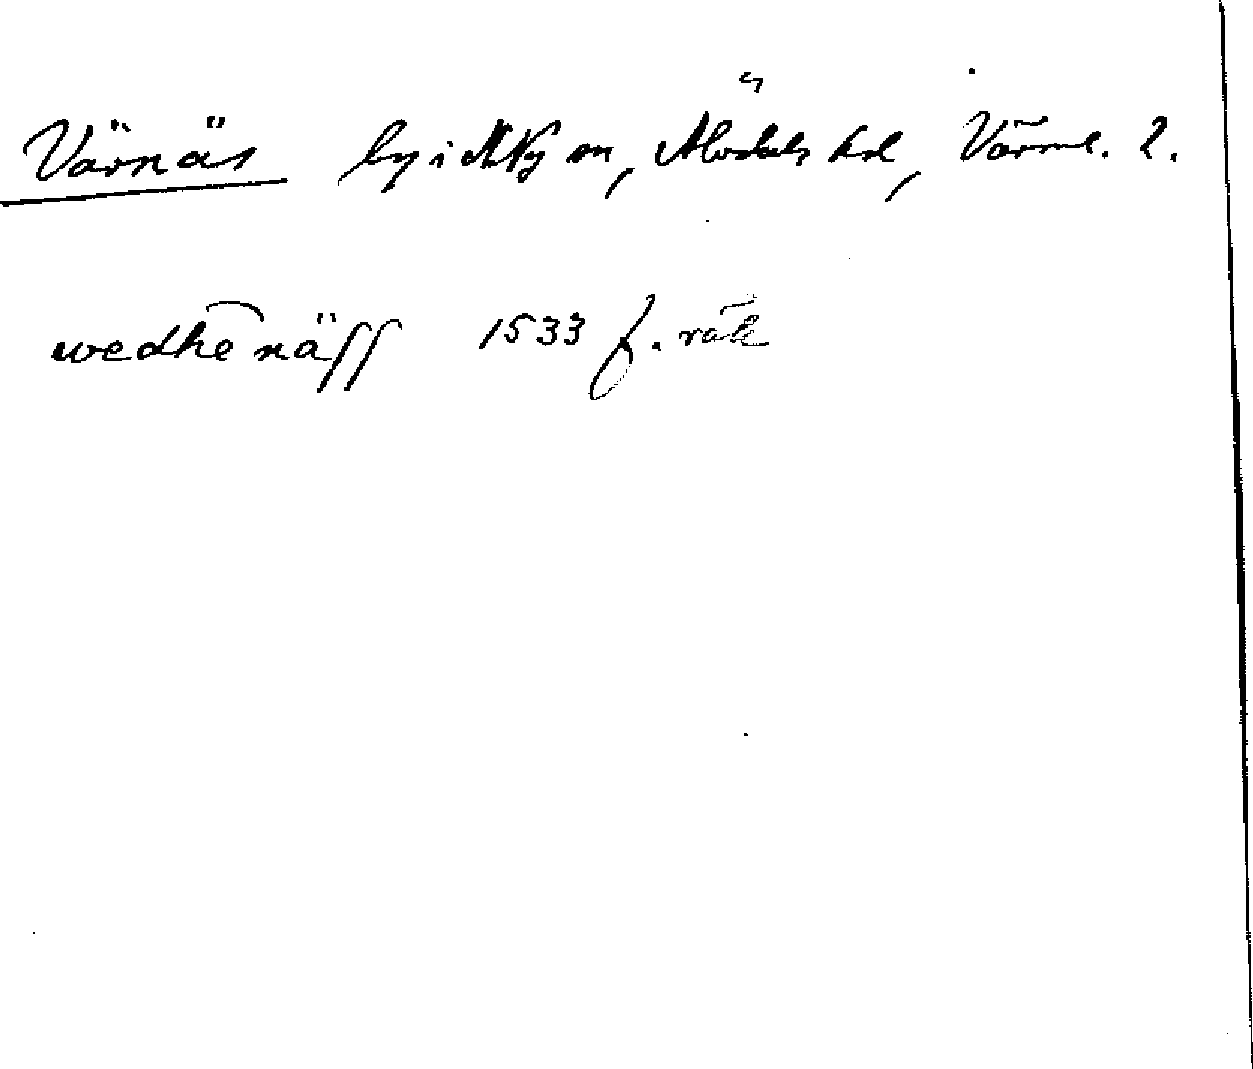 Värnäs by i Nky sn, Älvdals hd, Värml. l.
wedhe näss 1533 f. räk